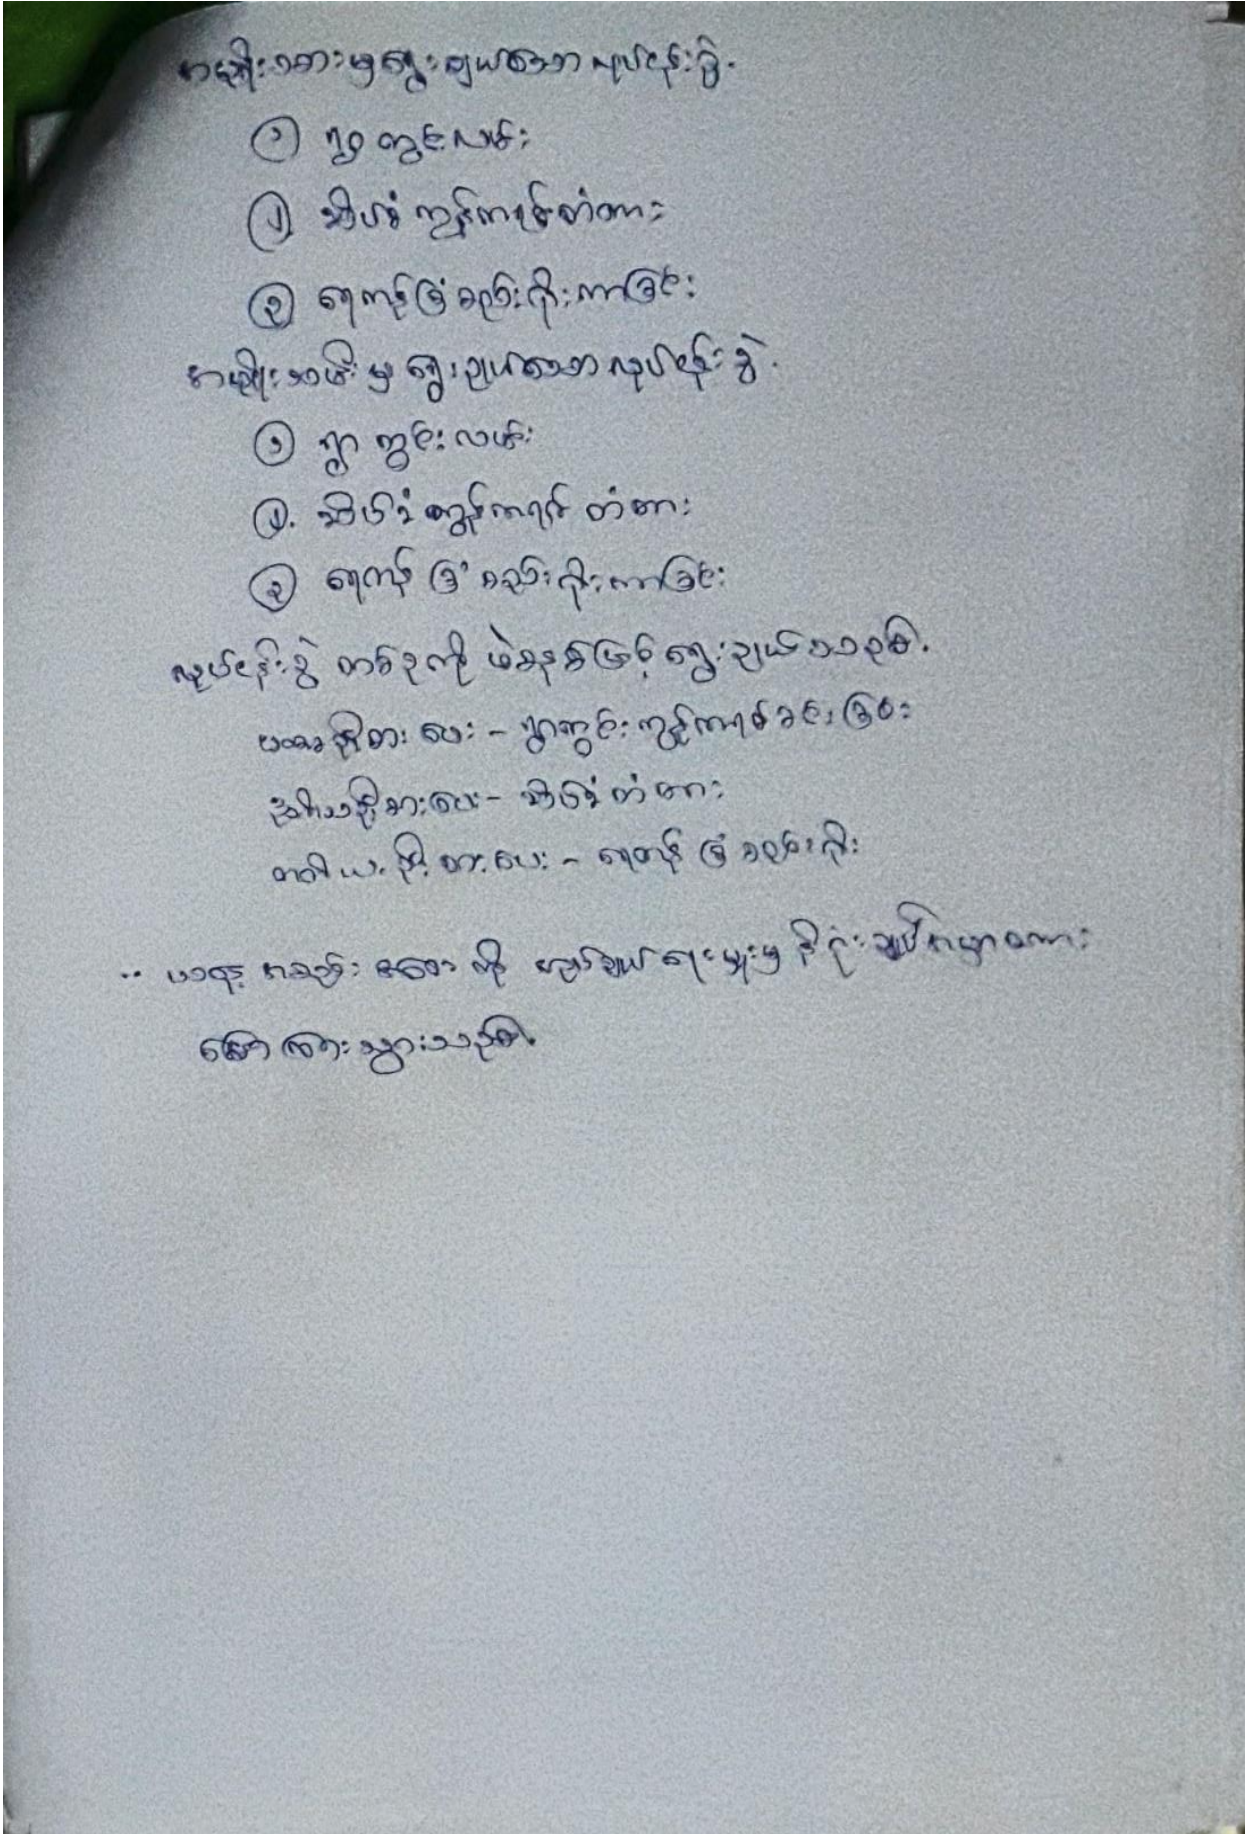 အမျိုးသားမှရွေးချယ်သော လုပ်ငန်းခွဲ.
① ရွာတွင်းလမ်း
② ဆိပ်ခံ ကွန်ကရစ်တံတား
③ ရေကန်ခြံစည်းရိုးကာခြင်း
အမျိုးသမီးမှ ရွေးချယ်သော လုပ်ငန်းခွဲ.
① ရွာတွင်းလမ်း
②. ဆိပ်ခံ ကွန်ကရစ် တံတား
③ ရေကန် ခြံစည်းရိုးကာခြင်း
လုပ်ငန်းခွဲ တစ်ခုကို မဲစနစ်ဖြင့် ရွေးချယ်သည်။
ပထမဦးစားပေး - ရွာတွင်းကွန်ကရစ်ခင်းခြင်း
ဒုတိယဦးစားပေး - ဆိပ်ခံတံတား
တတိယဦးစားပေး - ရေကန်ခြံစည်းရိုး
ယနေ့ အစည်းအဝေးကို ကျေးရေးမှူးမှ နိဂုံးချုပ်အမှာစကား
ပြောကြားသွားသည်။